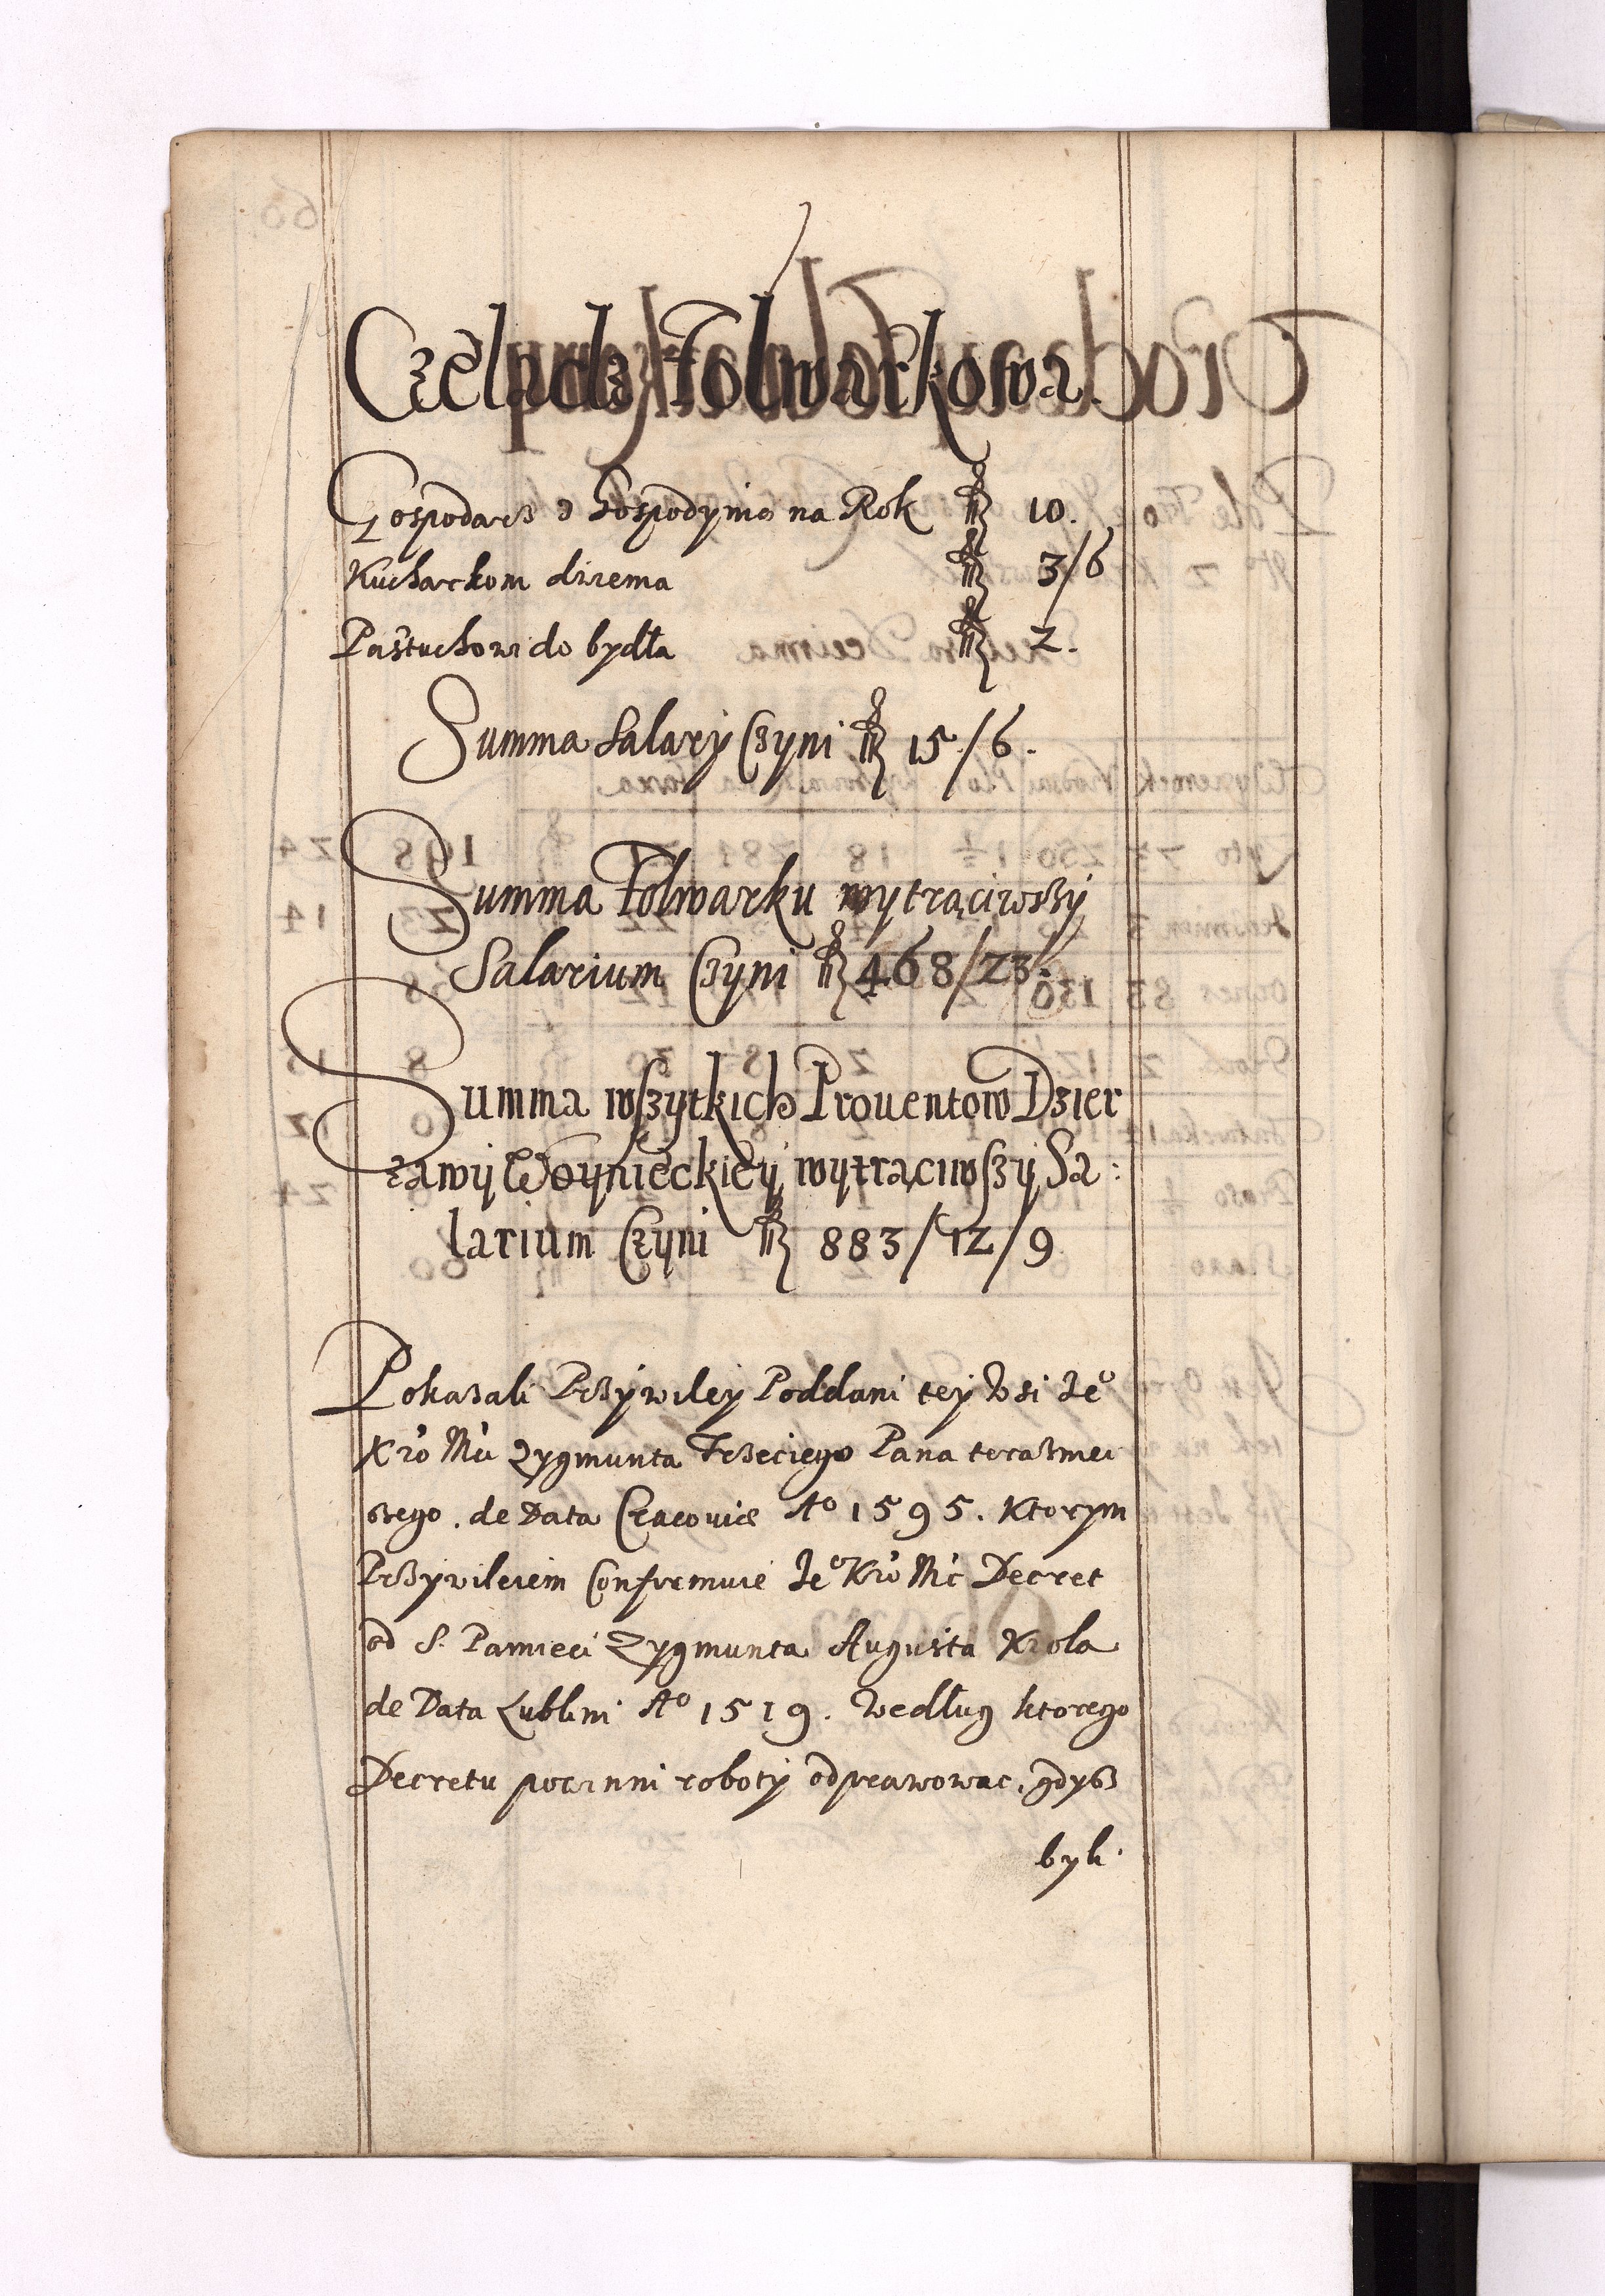 Czeladz Folwarkowa.
Gospodarz z Gospodynią na Rok fl 10.
Kucharkom dwiema fl 3/6
Pastuchowi do bydła fl 2.
Summa Salarÿ Czyni fl 15/6.
Summa Folwarku wytrąciwszÿ
Salarium Czÿni fl 468/23.
Summa wszytkich Prouentow Dzier
zawÿ Woynieckieÿ wytrąciwszÿ Sa:
larium Czÿni fl 883/12/9
Pokazali Przÿwileÿ Poddani teÿ Wsi Je°
Kró Mći Zygmunta Trzeciego Pana teraznei
szego. de Data Cracouiæ A° 1595. Ktorym
Przÿwileiem Confirmuie Je° Kró Mć Decret
od S. Pamieci Zygmunta Augusta Krola
de Data Lublini A° 1519. Według ktorego
Decretu powinni robotÿ odprawowac, gdysz
byli.